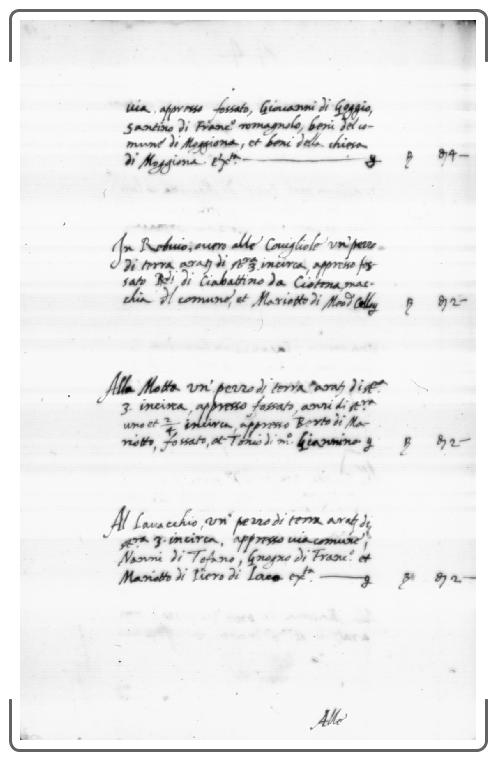 via appresso fossato, Giovanni di Goggio,
Santino di Franc.º romagnolo, beni del co-
mune di Moggiona, et beni della chiesa
di Moggiona etc.ª
In, overo alle Covigliole un' pezzo
di terra arat.ª di st.ra 3. incirca, appresso fos-
sato di Ciabattino da Ciotena mac-
chia d'l comune, et Mariotto di
Alla Motta un' pezzo di terra arat.ª di st.ra
3. incirca, appresso fossato, anzi di st.ra
uno et 2/4 incirca, appresso Berto di Ma-
riotto, fossato, et Tonio di m.º Giannino
Al Lavacchio, un' pezzo di terra arat.ª di
st.ra 3. incirca, appresso via comune,
Nanni di Tofano, Gnogno di Franc.º et
Mariotto di Piero di etc.ª
Alle